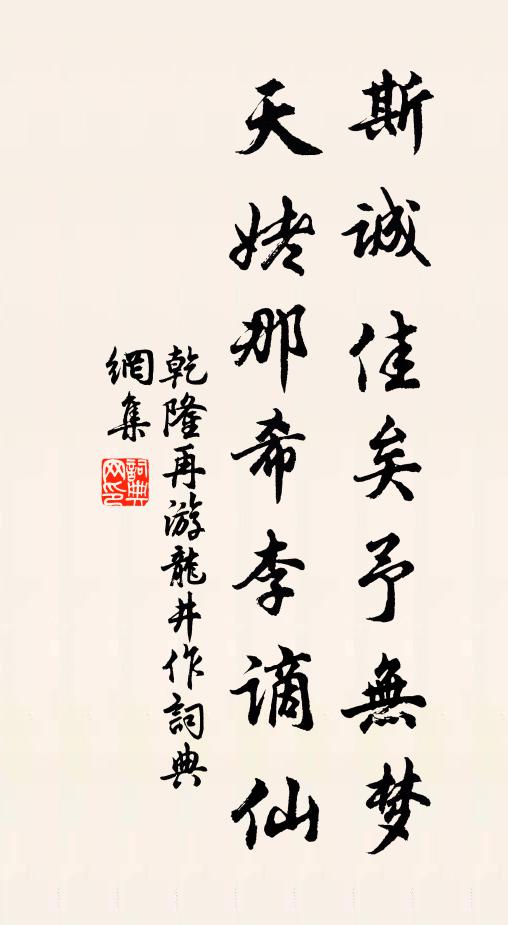 斯诚佳矣予無梦
天姥那希李谪仙
乾隆再游龍井作詞典
網集
詞典
网印